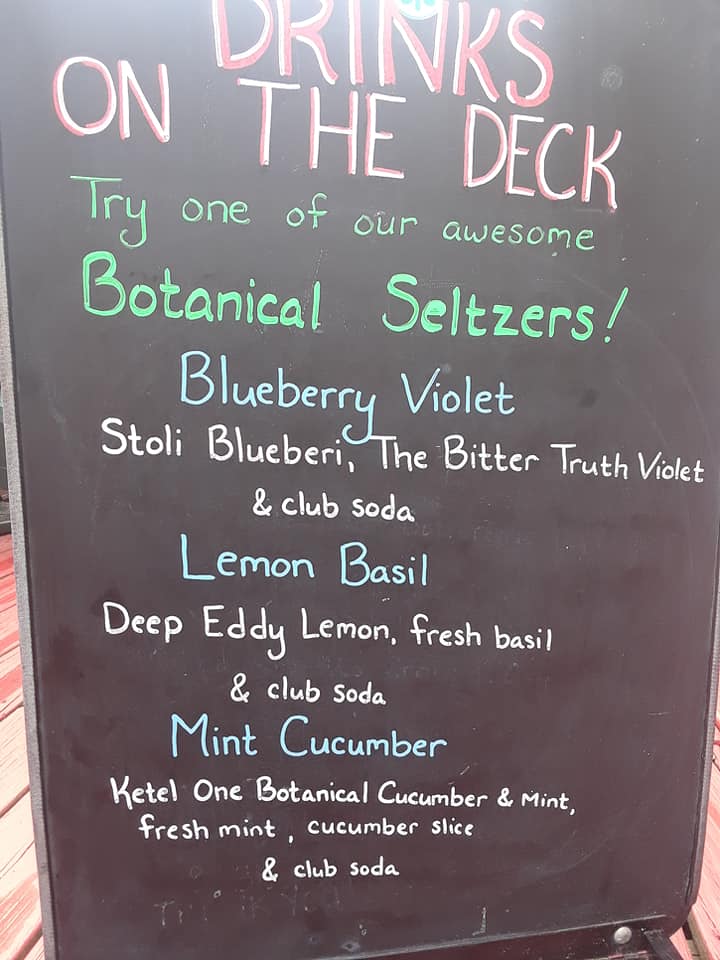 DRINKS
ON THE DECK
Try one of our awesome
Botanical Seltzers!
Blueberry Violet
Stoli Blueberi, The Bitter Truth Violet
& club soda
Lemon Basil
Deep Eddy Lemon, fresh basil
& club soda
Mint Cucumber
Ketel One Botanical Cucumber & Mint,
fresh mint, cucumber slice
& club soda